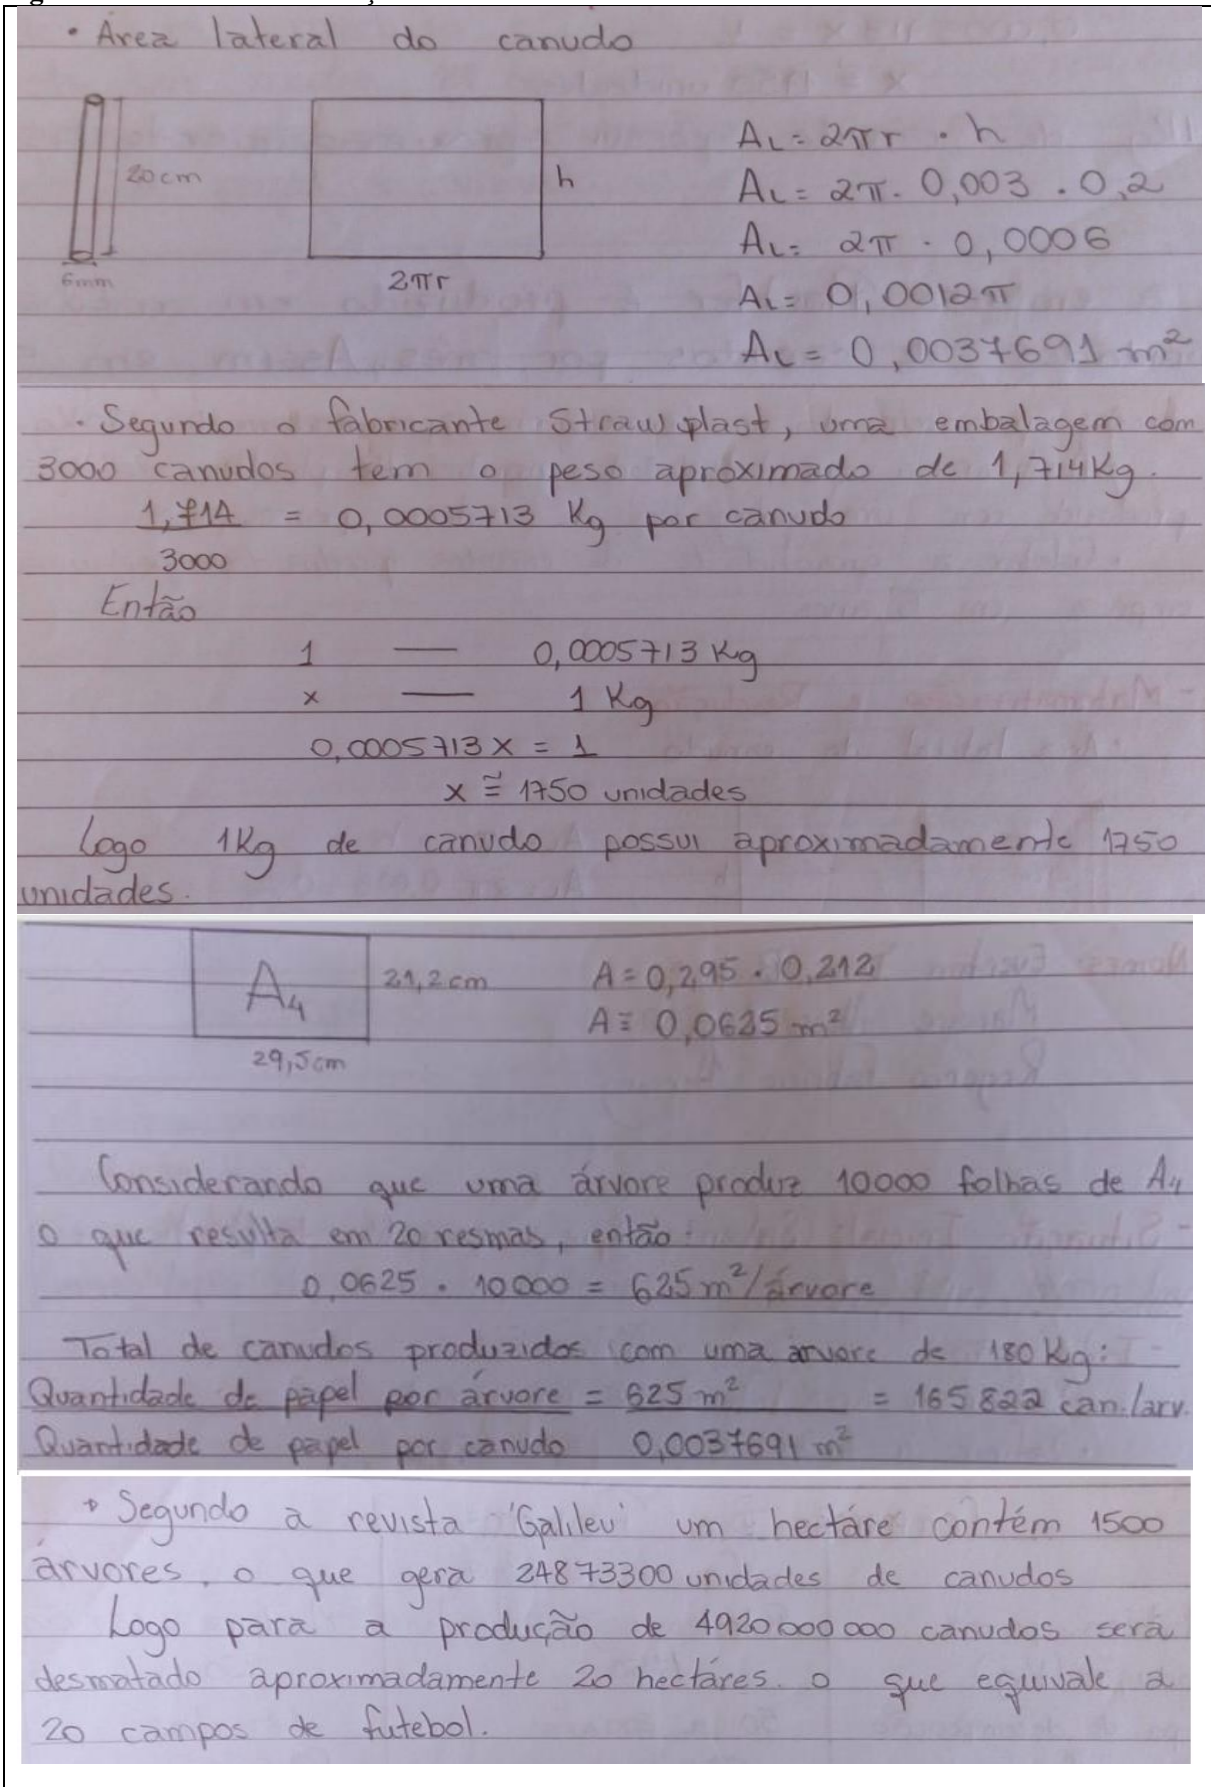 • Área lateral do canudo
20cm
6mm
h
2πr
AL = 2πr . h
AL = 2π . 0,003 . 0,2
AL = 2π . 0,0006
AL = 0,0012π
AL = 0,0037691 m²
. Segundo o fabricante Strawplast, uma embalagem com
3000 canudos tem o peso aproximado de 1,714Kg.
1,714 = 0,0005713 Kg por canudo
3000
Então
1 — 0,0005713 Kg
x — 1 Kg
0,0005713x = 1
x ≅ 1750 unidades
Logo 1Kg de canudo possui aproximadamente 1750
unidades.
A4
21,2cm
29,5cm
A = 0,295 . 0,212
A ≅ 0,0625 m²
Considerando que uma árvore produz 10000 folhas de A4
o que resulta em 20 resmas, então:
0,0625 . 10000 = 625 m²/árvore
Total de canudos produzidos com uma árvore de 180Kg:
Quantidade de papel por árvore = 625 m² = 165822 can./arv.
Quantidade de papel por canudo 0,0037691 m²
• Segundo a revista 'Galileu' um hectáre contém 1500
árvores, o que gera 24873300 unidades de canudos
Logo para a produção de 4920000000 canudos será
desmatado aproximadamente 20 hectáres. o que equivale a
20 campos de futebol.